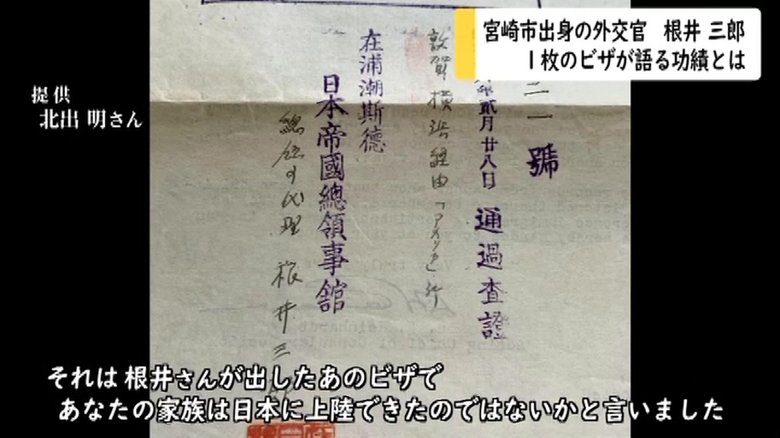 宮崎市出身の外交官　根井 三郎
1枚のビザが語る功績とは
提供
北出 明さん
二一號
貳月廿八日 通過査證
敦賀横浜経由「アメリカ」行
在浦潮斯德
日本帝國總領事館
代理 根井三
それは 根井さんが出したあのビザで
あなたの家族は日本に上陸できたのではないかと言いました